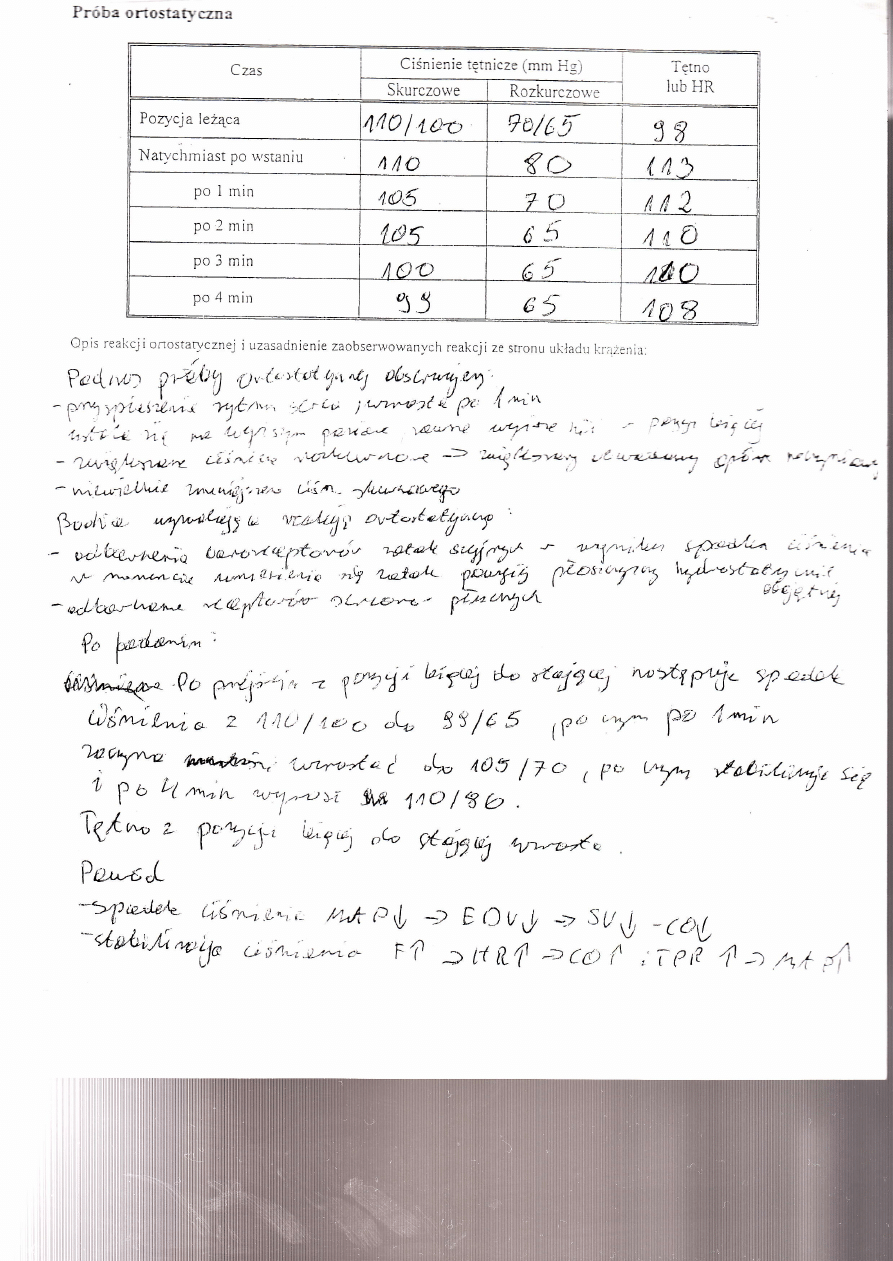 Próba ortostatyczna
Czas Ciśnienie tętnicze (mm Hg) Tętno lub HR
Skurczowe Rozkurczowe
Pozycja leżąca 110/100 70/65 98
Natychmiast po wstaniu 110 80 113
po 1 min 105 70 112
po 2 min 105 65 110
po 3 min 100 65 110
po 4 min 99 65 108
Opis reakcji ortostatycznej i uzasadnienie zaobserwowanych reakcji ze stronu układu krążenia:
Podczas próby ortostatycznej obserwujemy:
- przyspieszenie rytmu serca po 1 min
ustala się na wyższym poziomie w pozycji leżącej
- zwiększone ciśnienie rozkurczowe -> zwiększony opór
- niewielkie zmniejszenie ciśn. skurczowego
Bodźce wyzwalające reakcję ortostatyczną:
- odbarczenie baroreceptorów zatok szyjnych w wyniku spadku ciśnienia
w momencie się zatok powyżej płaszczyzny hydrostatycznie
obojętnej
- odbarczenie receptorów sercowo-płucnych
Po badaniu:
Po przejściu z pozycji leżącej do stojącej następuje spadek
ciśnienia z 110/100 do 99/65, po czym po 1 min
zaczyna wzrastać do 105/70, po czym stabilizuje się
i po 4 min wynosi 110/80.
Tętno z pozycji leżącej do stojącej wzrosło.
Powód
- spadek ciśnienia MAP↓ -> EDV↓ -> SV↓ - CO↓
- stabilizacja ciśnienia F↑ -> HR↑ -> CO↑ i TPR ↑ -> MAP↑